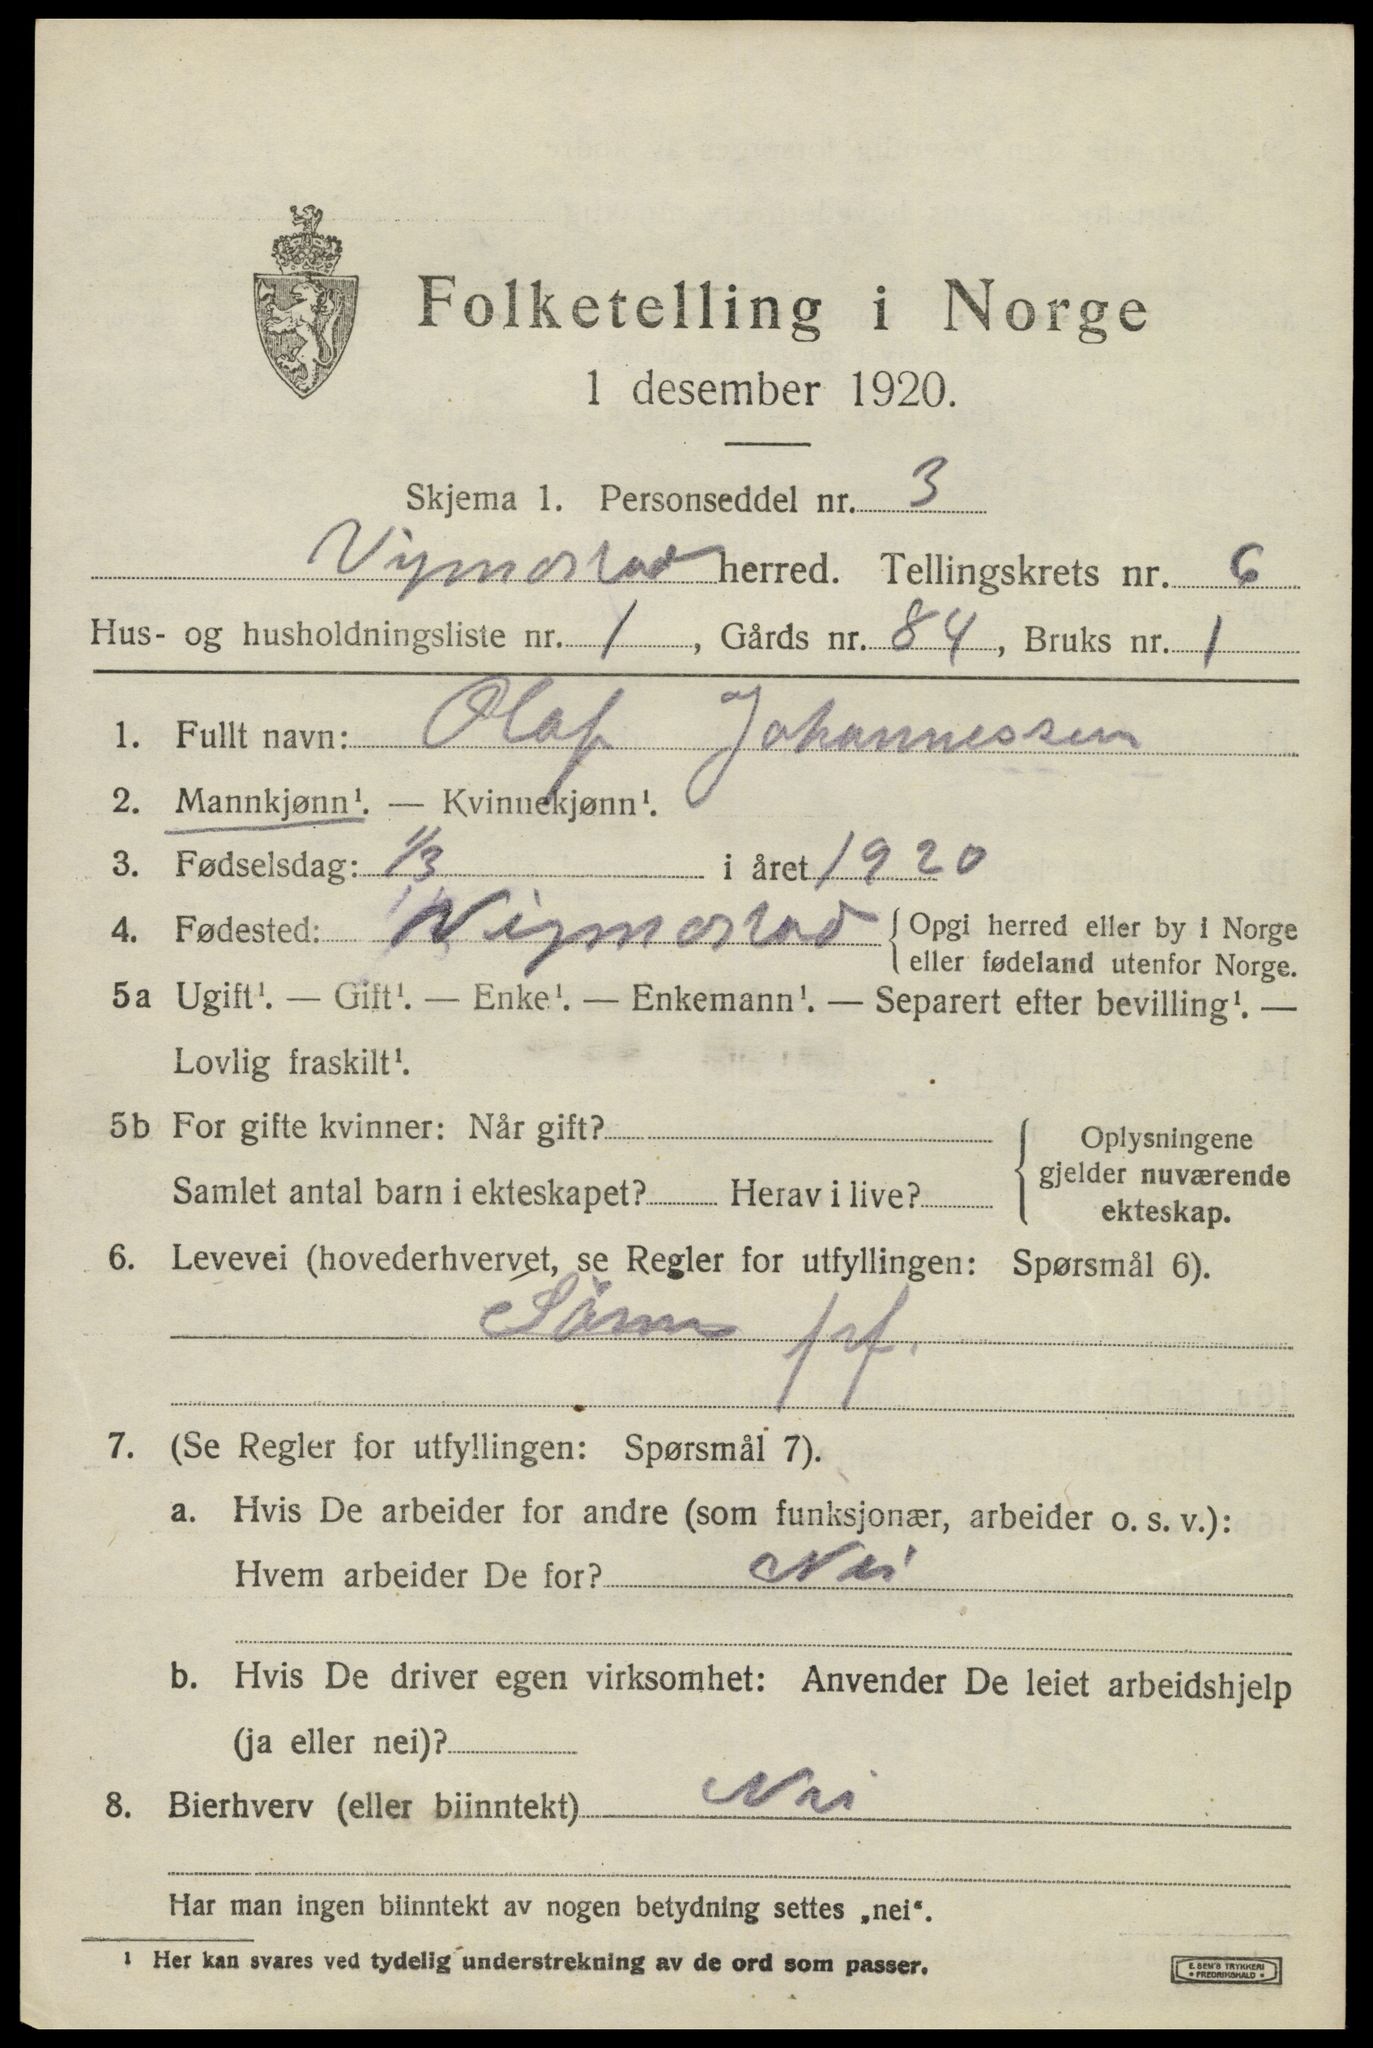 Folketelling i Norge
1 desember 1920.
Skjema 1. Personseddel nr. 3
Vigmostad herred. Tellingskrets nr. 6
Hus- og husholdningsliste nr. 1, Gårds nr. 84, Bruks nr. 1
1. Fullt navn: Olaf Johannessen
2. Mannkjønn¹. — Kvinnekjønn¹.
3. Fødselsdag: 1/3 i året 1920
4. Fødested: Vigmostad { Opgi herred eller by i Norge
eller fødeland utenfor Norge.
5a Ugift¹. — Gift¹. — Enke¹. — Enkemann¹. — Separert efter bevilling¹. —
Lovlig fraskilt¹.
5b For gifte kvinner: Når gift?
Samlet antal barn i ekteskapet? Herav i live?
{ Oplysningene
gjelder nuværende
ekteskap.
6. Levevei (hovederhvervet, se Regler for utfyllingen: Spørsmål 6).
7. (Se Regler for utfyllingen: Spørsmål 7).
a. Hvis De arbeider for andre (som funksjonær, arbeider o. s. v.):
Hvem arbeider De for? Nei
b. Hvis De driver egen virksomhet: Anvender De leiet arbeidshjelp
(ja eller nei)?
8. Bierhverv (eller biinntekt) Nei
Har man ingen biinntekt av nogen betydning settes „nei“.
¹ Her kan svares ved tydelig understrekning av de ord som passer.
E. SEM'S TRYKKERI
• FREDRIKSHALD •